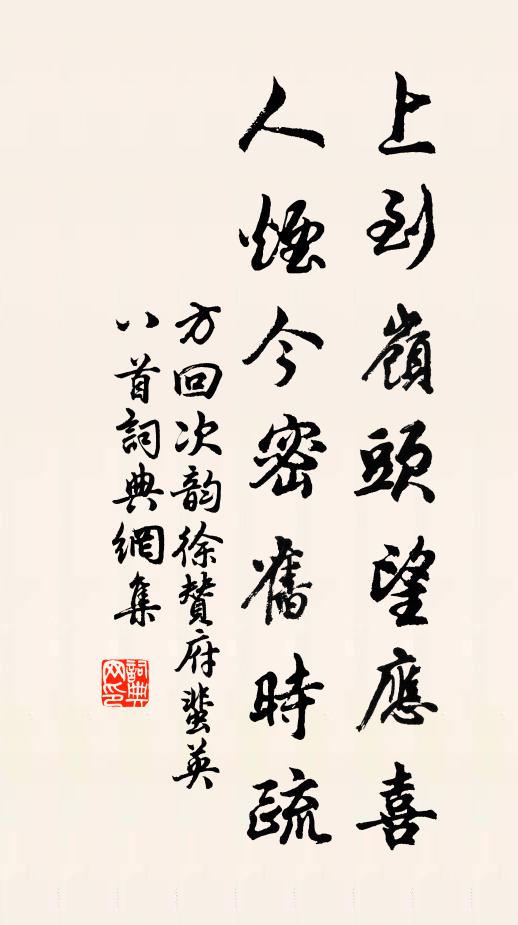 上到嶺頭望應喜
人煙今密舊時疏
方回次韵徐贊府蜚英
八首詞典網集
詞典网印